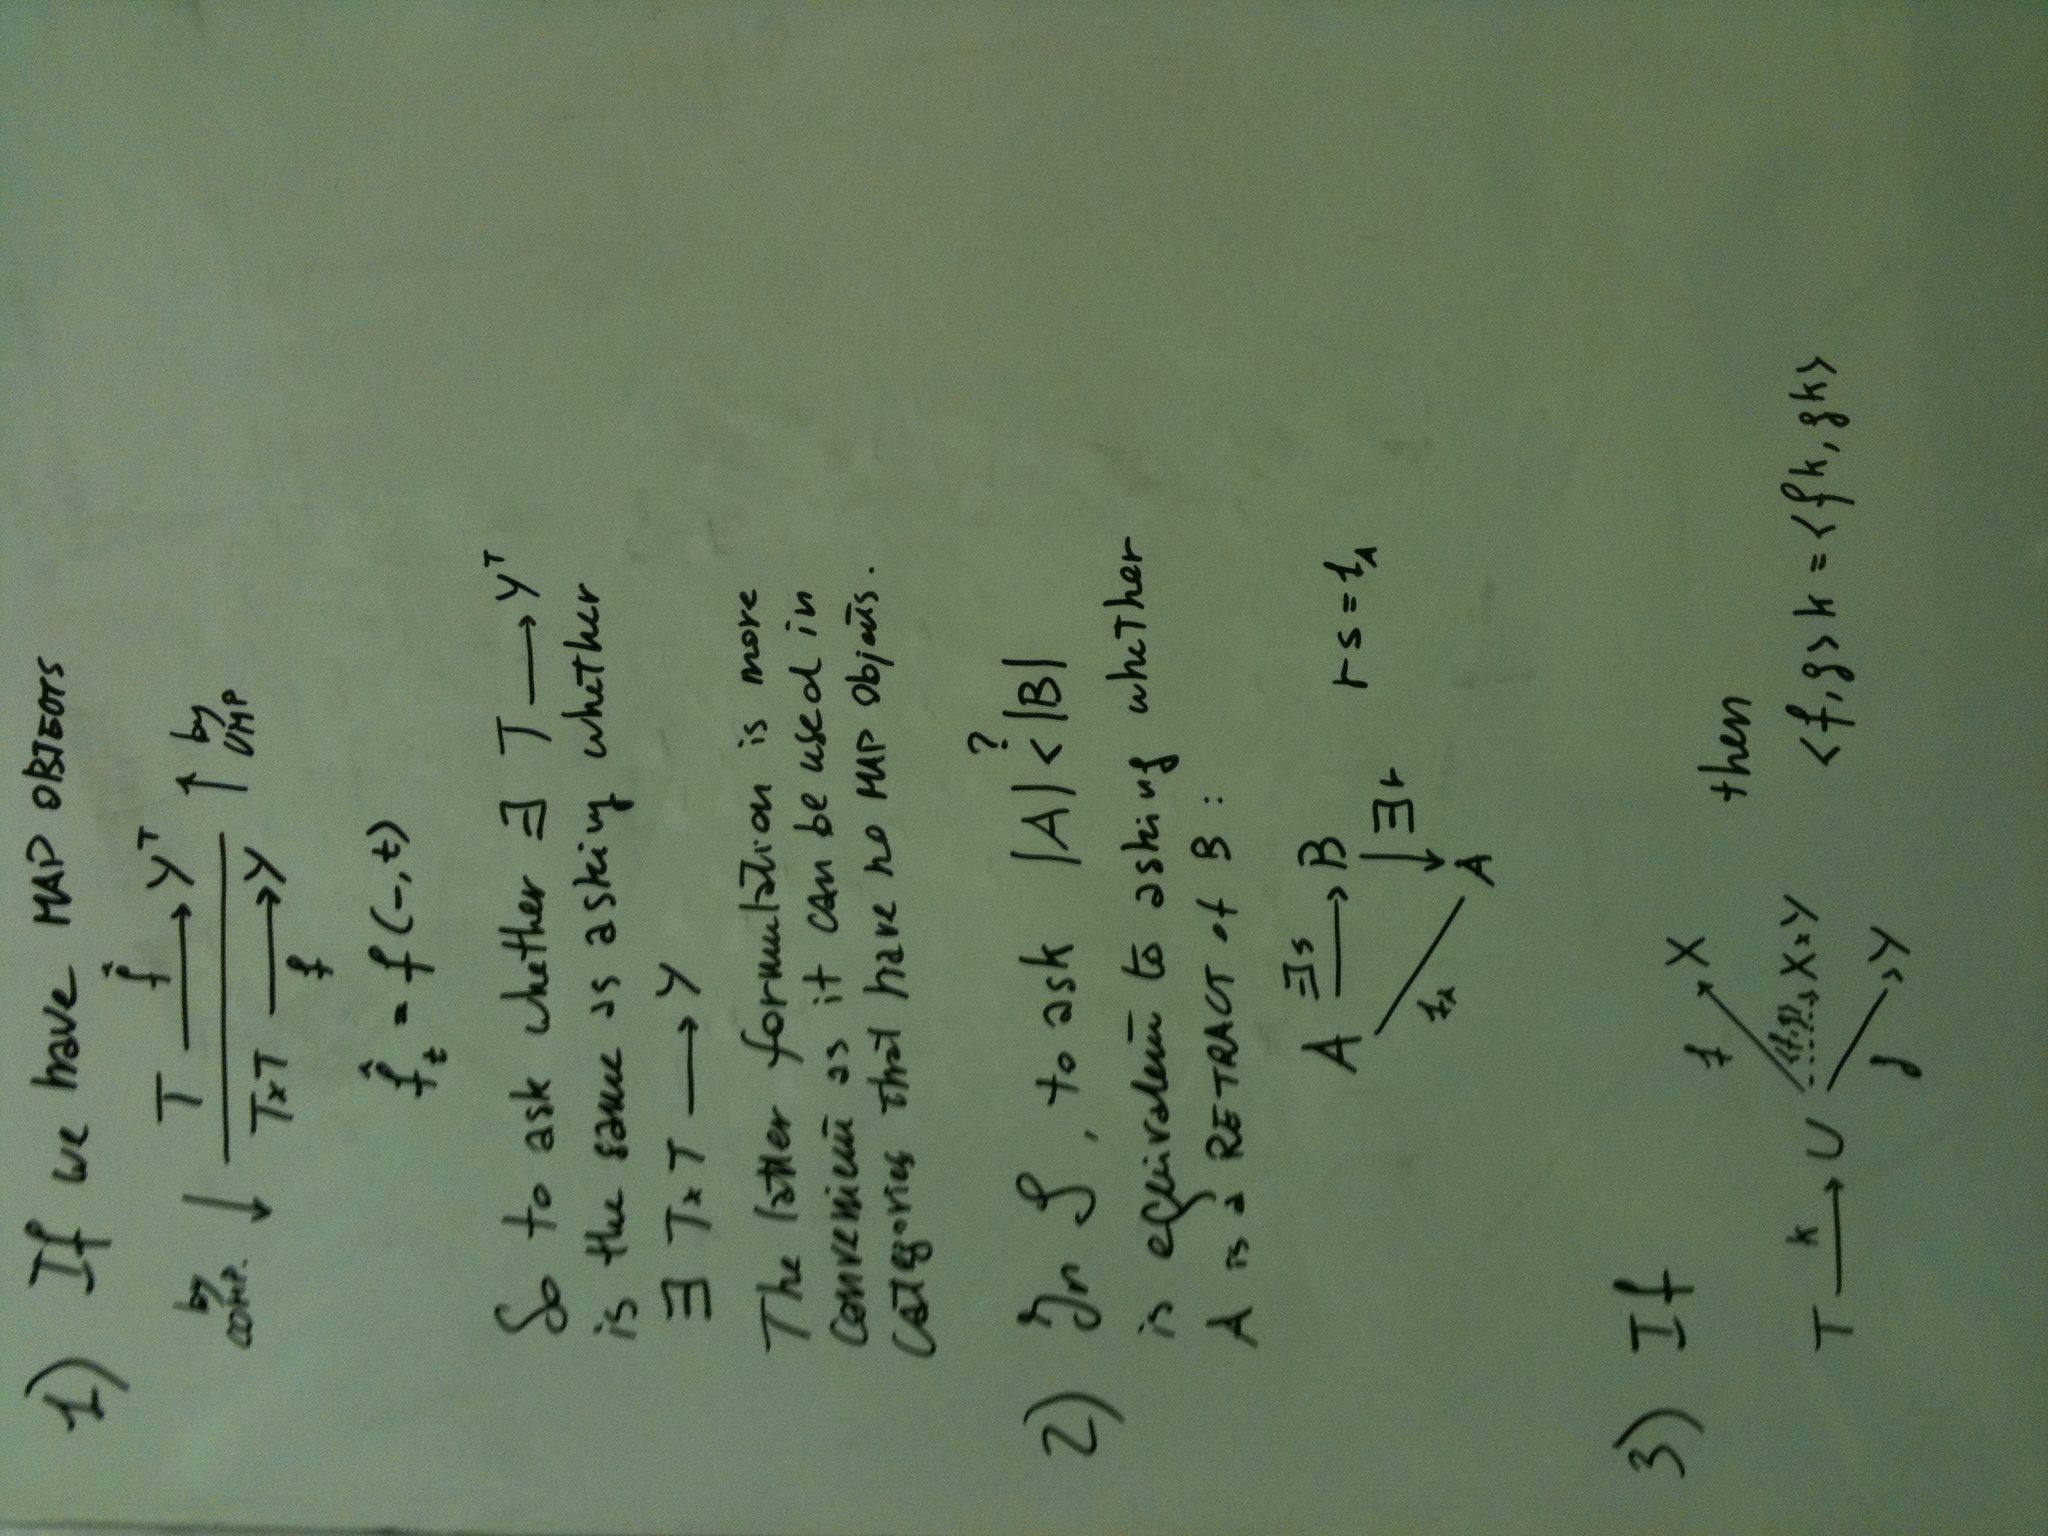 1) If we have MAP OBJECTS
f̂
by COMP. ↓ T → Y^T ↑ by UMP
T×T → Y
f
f̂_t = f(-,t)
So to ask whether ∃ T → Y^T
is the same as asking whether
∃ T×T → Y
The latter formulation is more
convenient as it can be used in
categories that have no MAP Objects.
?
2) In 𝒮, to ask |A| < |B|
is equivalent to asking whether
A is a RETRACT of B :
∃s
A → B rs = 1_A
↓ ∃r
1_A
A
3) If
f X
then
T k→ U <f,g> X×Y <f,g>k = <fk, gk>
g Y